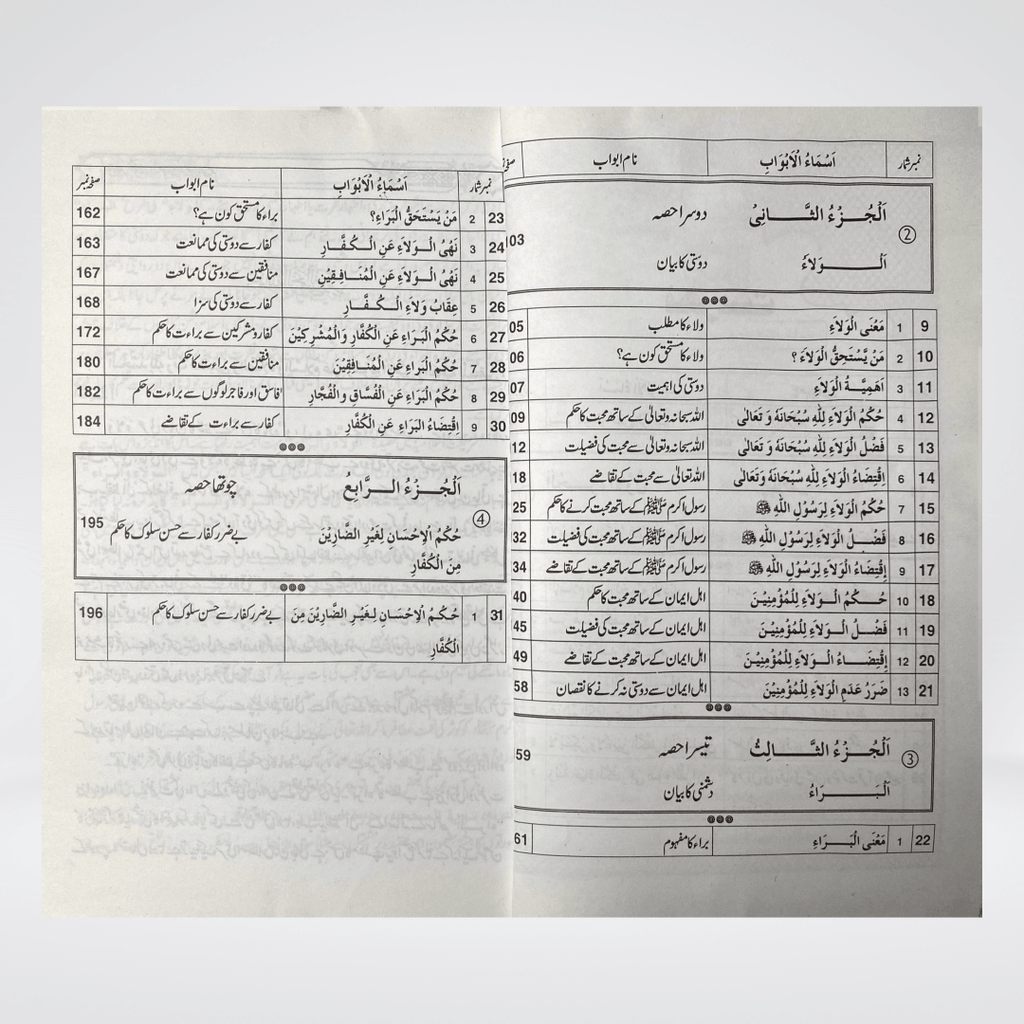 نمبرشمار اَسْمَاءُ الْاَبْوَابِ نام ابواب
② اَلْجُــزْءُ الثَّـــانِیْ دوسرا حصہ 103
اَلْـــــوَلَاءُ دوستی کا بیان
9 1 مَعْنَی الْوَلَاءِ ولاء کا مطلب 05
10 2 مَنْ یَّسْتَحِقُّ الْوَلَاءَ ؟ ولاء کا مستحق کون ہے؟ 06
11 3 اَهَمِیَّـةُ الْـوَلَاءِ دوستی کی اہمیت 07
12 4 حُكْمُ الْوَلَاءِ لِلّٰهِ سُبْحَانَهٗ وَ تَعَالٰی اللہ سبحانہ وتعالیٰ کے ساتھ محبت کا حکم 09
13 5 فَضْلُ الْوَلَاءِ لِلّٰهِ سُبْحَانَهٗ وَ تَعَالٰی اللہ سبحانہ وتعالیٰ سے محبت کی فضیلت 12
14 6 اِقْتِضَاءُ الْوَلَاءِ لِلّٰهِ سُبْحَانَهٗ وَتَعَالٰی اللہ تعالیٰ سے محبت کے تقاضے 18
15 7 حُكْمُ الْوَلَاءِ لِرَسُوْلِ اللّٰهِ ﷺ رسول اکرم ﷺ کے ساتھ محبت کرنے کا حکم 25
16 8 فَضْـلُ الْـوَلَاءِ لِرَسُوْلِ اللّٰهِ ﷺ رسول اکرم ﷺ کے ساتھ محبت کی فضیلت 32
17 9 اِقْتِضَاءُ الْوَلَاءِ لِرَسُوْلِ اللّٰهِ ﷺ رسول اکرم ﷺ کے ساتھ محبت کے تقاضے 34
18 10 حُــكْمُ الْـوَلَاءِ لِلْمُؤْمِنِیْنَ اہل ایمان کے ساتھ محبت کا حکم 40
19 11 فَضْـلُ الْـوَلَاءِ لِلْمُؤْمِنِیْنَ اہل ایمان کے ساتھ محبت کی فضیلت 45
20 12 اِقْتِضَـاءُ الْـوَلَاءِ لِلْمُؤْمِنِیْنَ اہل ایمان کے ساتھ محبت کے تقاضے 49
21 13 ضَرَرُ عَدَمِ الْوَلَاءِ لِلْمُؤْمِنِیْنَ اہل ایمان سے دوستی نہ کرنے کا نقصان 58
③ اَلْجُــزْءُ الثَّـــالِثُ تیسرا حصہ 59
اَلْبَـــــرَاءُ دشمنی کا بیان
22 1 مَعْنَی الْبَـــرَاءِ براء کا مفہوم 61
نمبرشمار اَسْمَاءُ الْاَبْوَابِ نام ابواب صفحہ نمبر
23 2 مَنْ یَسْتَحَقُّ الْبَرَاءِ؟ براء کا مستحق کون ہے؟ 162
24 3 نَهْیُ الْـوَلَاءِ عَنِ الْـكُـفَّـارِ کفار سے دوستی کی ممانعت 163
25 4 نَهْیُ الْـوَلَاءِ عَنِ الْمُنَـافِـقِیْنَ منافقین سے دوستی کی ممانعت 167
26 5 عِقَابُ وَلَاءِ الْـكُـفَّـارِ کفار سے دوستی کی سزا 168
27 6 حُكْمُ الْبَرَاءِ عَنِ الْكُفَّارِ وَالْمُشْرِكِیْنَ کفار و مشرکین سے براءت کا حکم 172
28 7 حُكْمُ الْبَرَاءِ عَنِ الْمُنَافِقِیْنَ منافقین سے براءت کا حکم 180
29 8 حُكْمُ الْبَرَاءِ عَنِ الْفُسَّاقِ و الْفُجَّارِ فاسق اور فاجر لوگوں سے براءت کا حکم 182
30 9 اِقْتِضَاءُ الْبَرَاءِ عَنِ الْكُفَّارِ کفار سے براءت کے تقاضے 184
④ اَلْجُــزْءُ الـرَّابِعُ چوتھا حصہ
حُكْمُ الْاِحْسَانِ لِغَیْرِ الضَّارِیْنَ بے ضرر کفار سے حسن سلوک کا حکم 195
مِنَ الْكُفَّارِ
31 1 حُـكْـمُ الْاِحْسَانِ لِـغَیْرِ الضَّارِیْنَ مِنَ بے ضرر کفار سے حسن سلوک کا حکم 196
الْكُفَّارِ